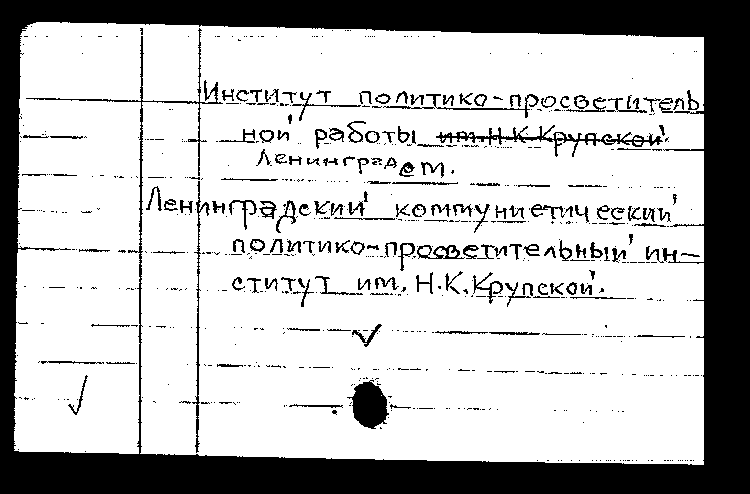 Институт политико-просветитель-
ной работы им. Н.К.Крупской.
Ленинград
см.
Ленинградский коммунистический
политико-просветительный ин-
ститут им. Н.К.Крупской.